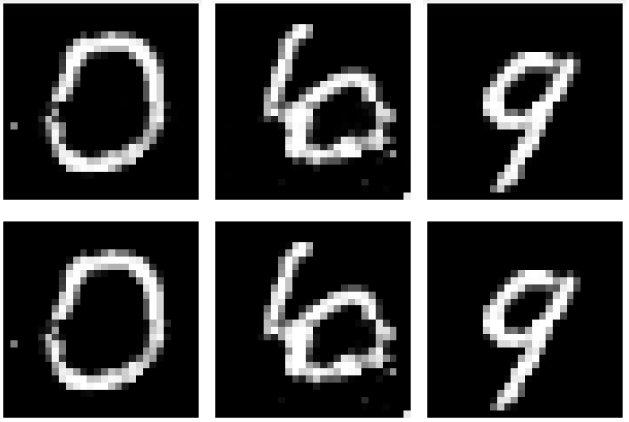 0 6 9
0 6 9